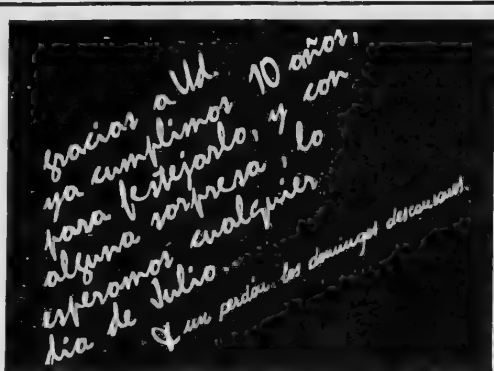 gracias a Ud.
ya cumplimos 10 años,
para festejarlo, y con
alguna sorpresa, lo
esperamos cualquier
día de Julio.
y un perdón: los domingos descansamos.